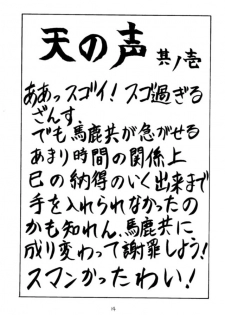 天の声 其ノ壱
ああっスゴイ！スゴ過ぎる
ざんす。
でも馬鹿共が急がせる
あまり時間の関係上
巳の納得のいく出来まで
手を入れられなかったの
かも知れん。馬鹿共に
成り変わって謝罪しよう！
スマンかったわい！